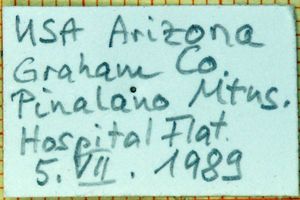 USA Arizona
Graham Co.
Pinalano Mtns.
Hospital Flat
5. VII. 1989